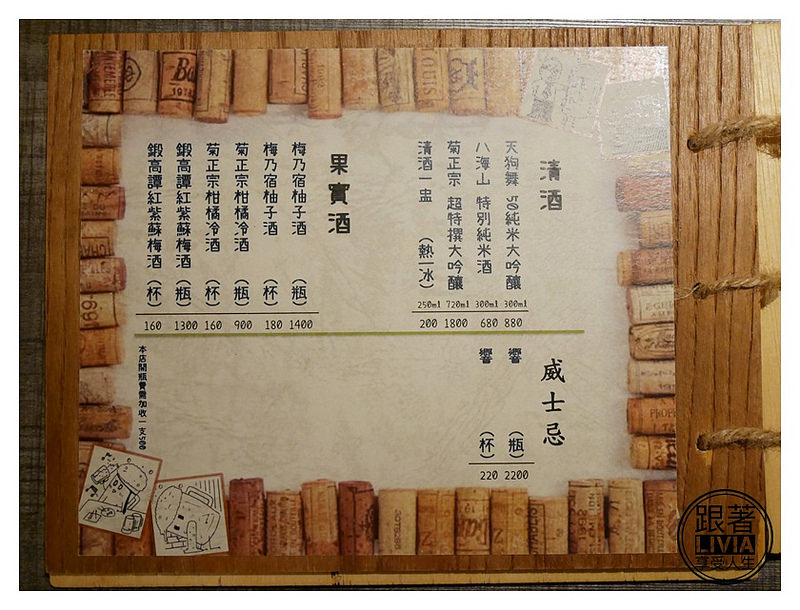 清酒
天狗舞 50純米大吟釀 300ml 880
八海山 特別純米酒 300ml 680
菊正宗 超特撰大吟釀 720ml 1800
清酒一盅 (熱一冰) 250ml 200
果實酒
梅乃宿柚子酒 (瓶) 1400
梅乃宿柚子酒 (杯) 180
菊正宗柑橘冷酒 (瓶) 900
菊正宗柑橘冷酒 (杯) 160
鍛高譚紅紫蘇梅酒 (瓶) 1300
鍛高譚紅紫蘇梅酒 (杯) 160
威士忌
響 (瓶) 2200
響 (杯) 220
本店開瓶費需加收一支500
跟著
LIVIA
享受人生